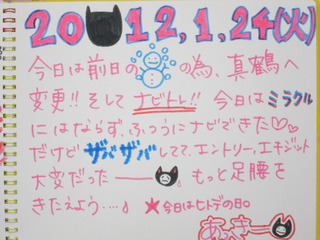 2012,1,24(火)
今日は前日の の為、真鶴へ
変更!! そして ナビトレ!! 今日は ミラクル
にはならず、ふつうにナビできた♡♡
だけど ザバザバしてて、エントリー、エキジット
大変だった―― 。もっと足腰を
きたえよう‥‥♪ ★今日はヒトデの日。
あっきー